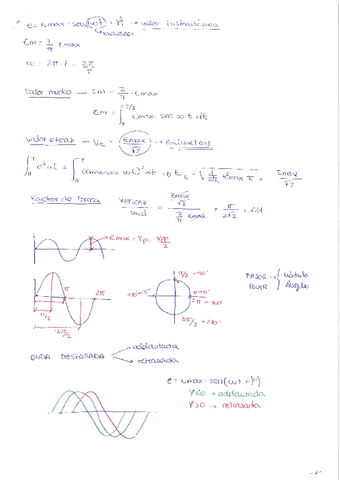 e = Emax · sen(ωt) + φ → valor instantáneo
→ radianes
Em = 2/π Emax
ω = 2π · F = 2π/T
Valor medio → Em = 2/π · Emax
Em = ∫₀^T/2 Emax · sen ω t dt
Valor eficaz → Vε = (Emax/√2)
∫₀^T e² dt = ∫₀^T (Emax sen ωt)² dt = Emax/√2
Factor de forma Veficaz/Vmed = (Emax/√2)/(2/π Emax) = π/2√2 = 1.11
Emax = Vp = Vpp/2
π 2π
π/2
3π/2
π/2 → 90°
0 → 0°
3π/2 → 270°
FASOR → Módulo
Ángulo
ONDA DESFASADA → adelantada
→ retrasada
e = Emax · sen(ωt + φ)
φ<0 → adelantada
φ>0 → retrasada